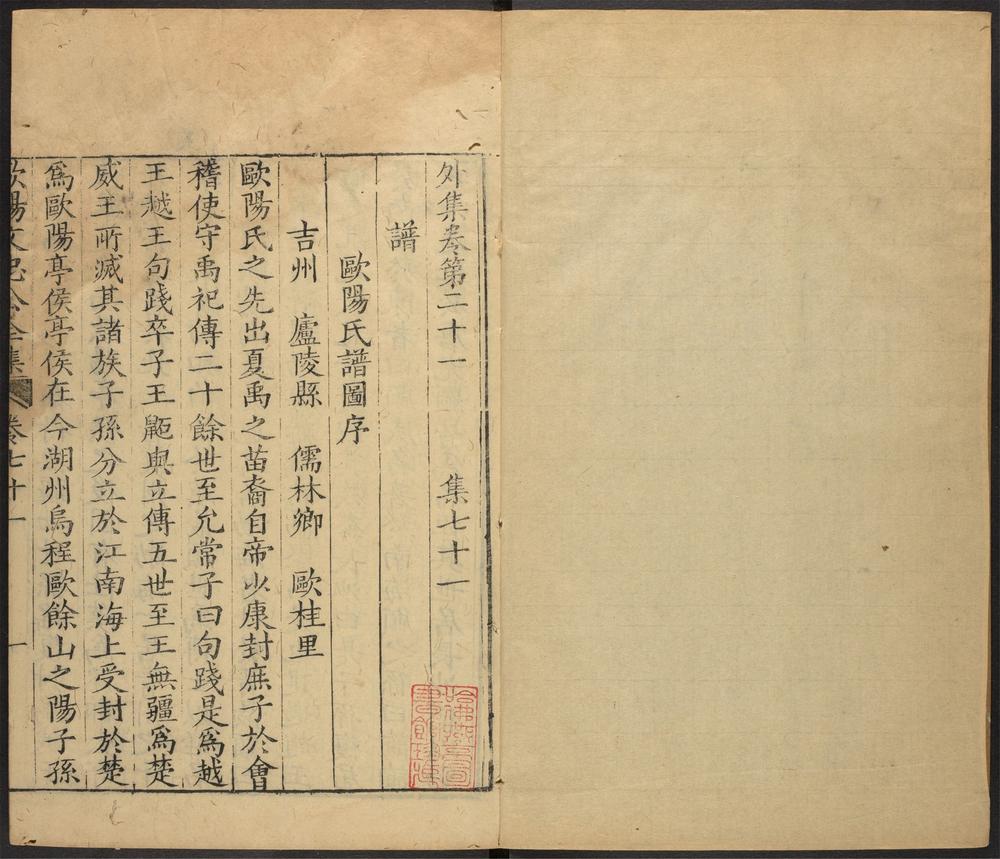 外集卷第二十一 集七十一
譜
歐陽氏譜圖序
吉州 廬陵縣 儒林鄉 歐桂里
歐陽氏之先出夏禹之苗裔自帝少康封庶子於會
稽使守禹祀傳二十餘世至允常子曰句踐是為越
王越王句踐卒子王鼫與立傳五世至王無疆為楚
威王所滅其諸族子孫分立於江南海上受封於楚
為歐陽亭侯亭侯在今湖州烏程歐餘山之陽子孫
歐陽文忠公全集 卷七十一 一
哈佛燕京圖書館珍藏